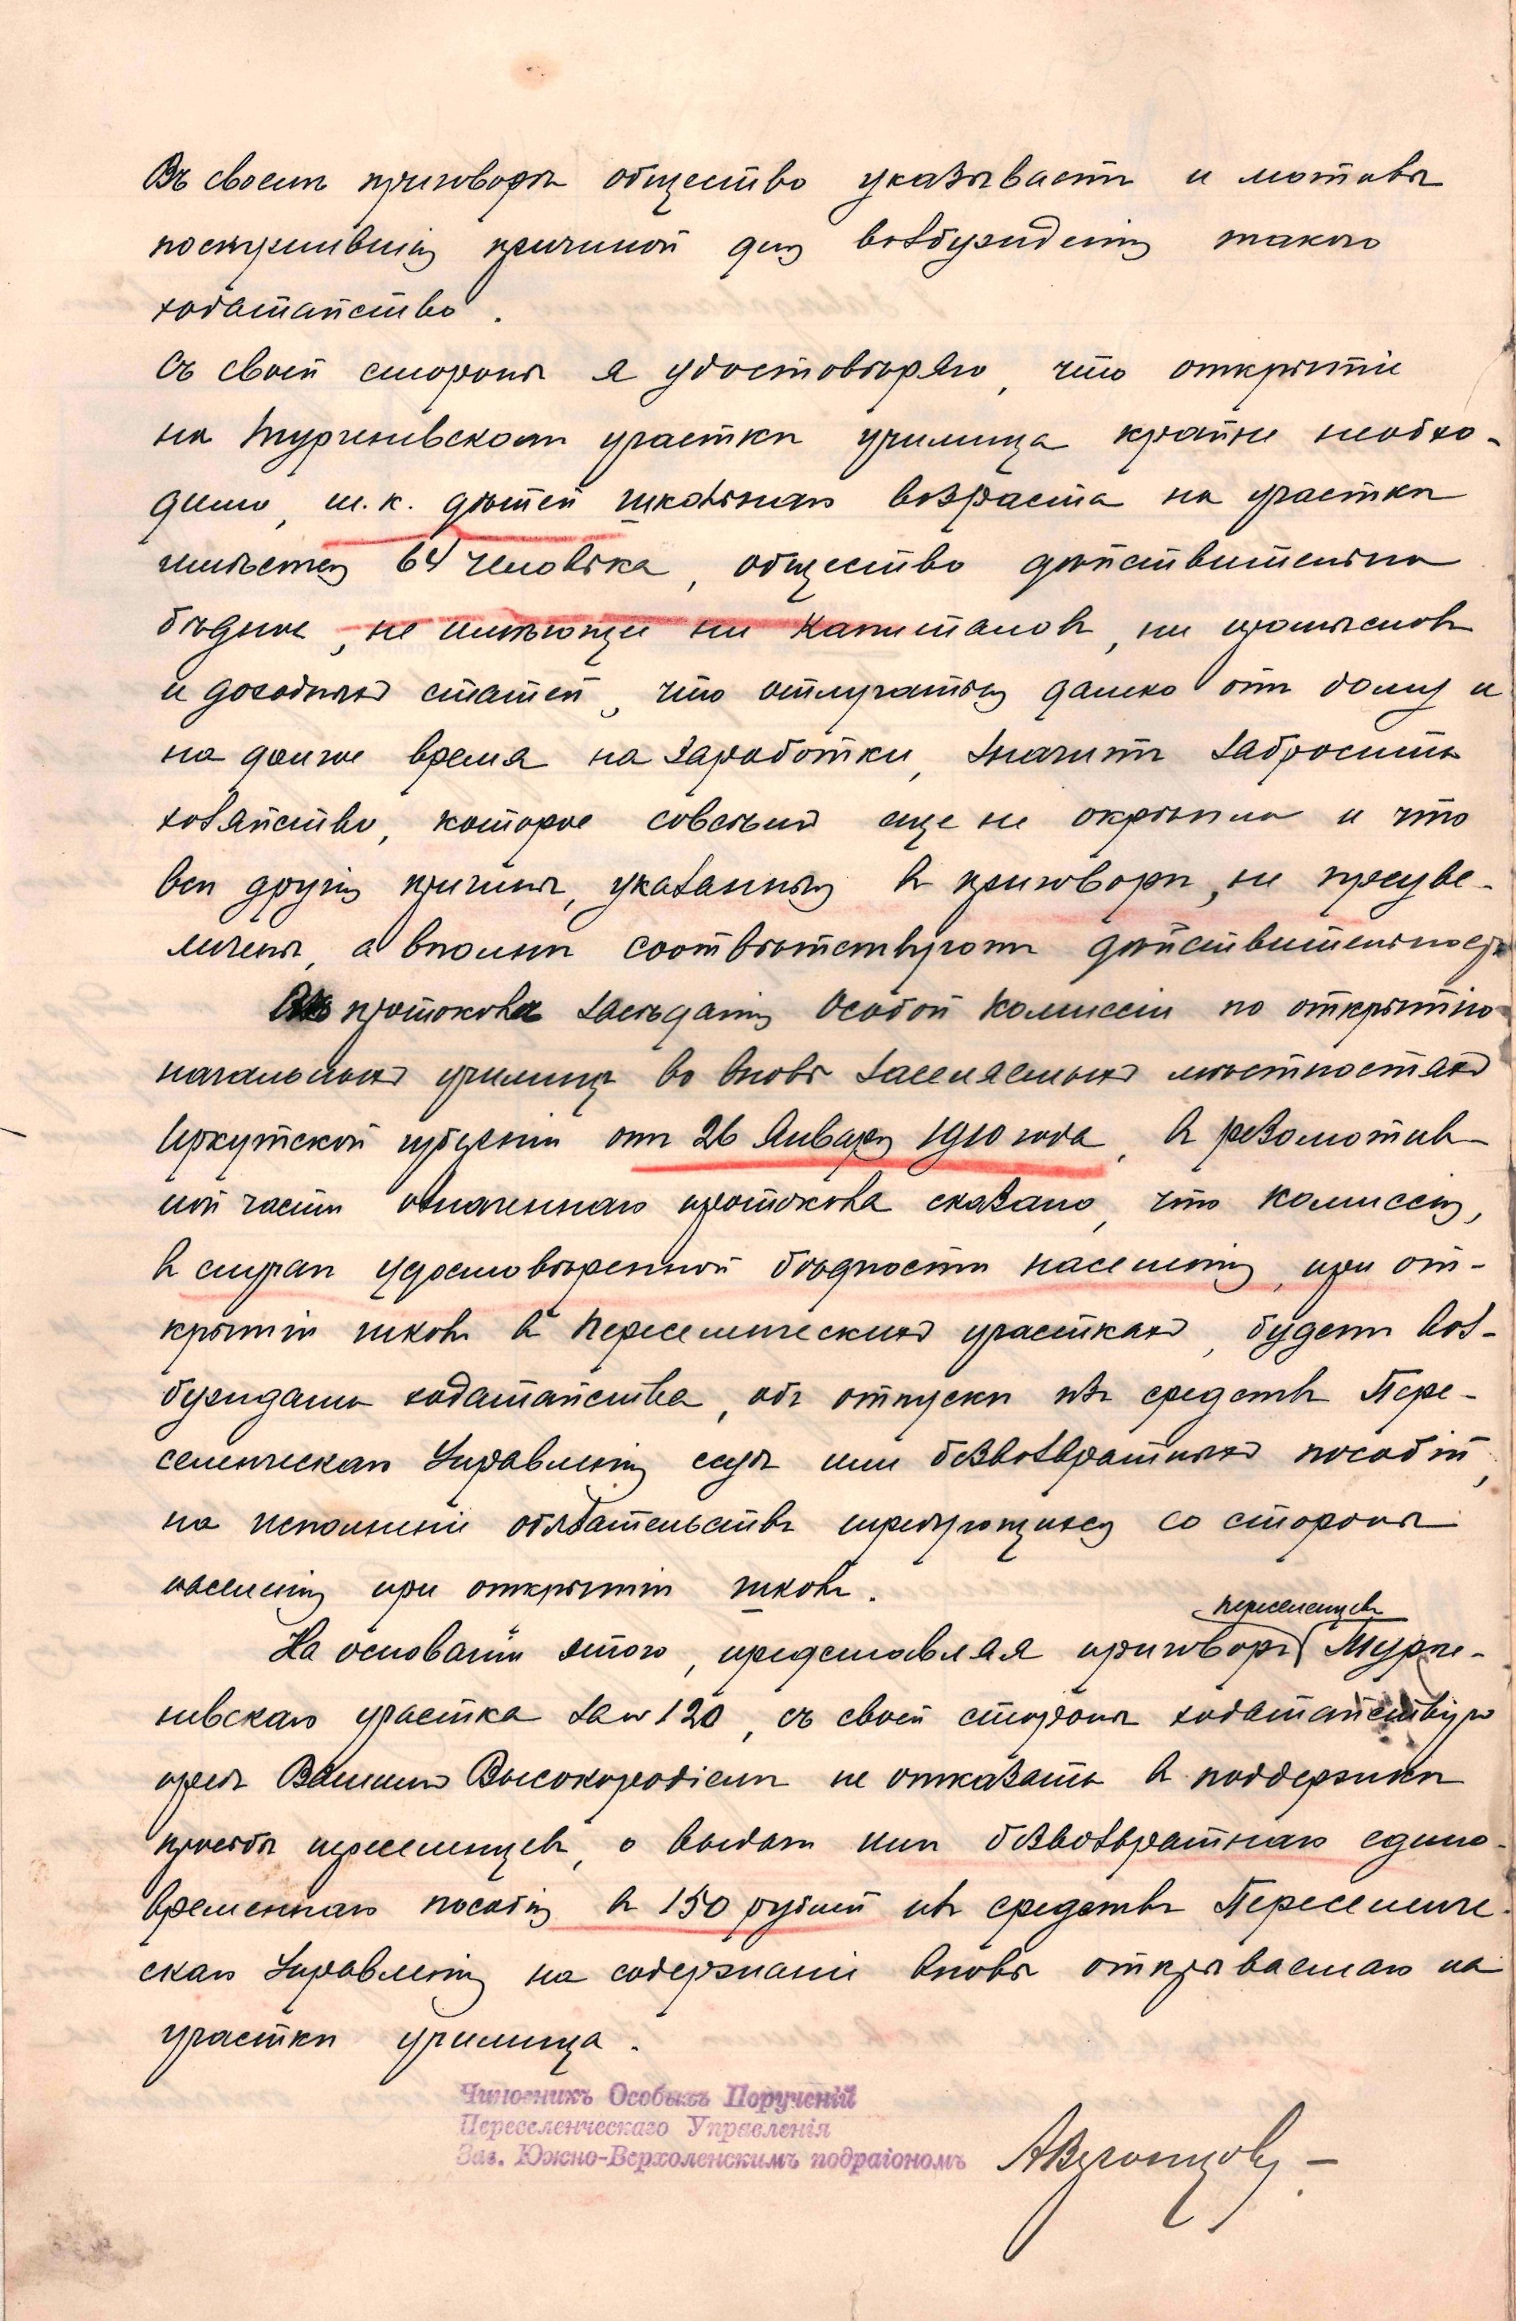 Въ своемъ приговорѣ общество указываетъ и мотивы
послужившія причиной для возбужденія такого
ходатайства.
Съ своей стороны я удостовѣряю, что открытіе
на Тургеневскомъ участкѣ училища крайне необхо-
димо, т.к. дѣтей школьнаго возраста на участкѣ
имѣется 64 человѣка, общество дѣйствительно
бѣдное, не имѣющее ни капиталовъ, ни промысловъ
и доходныхъ статей, что отлучаться далеко отъ дому и
на долгое время на заработки, значитъ забросить
хозяйство, которое совсѣмъ еще не окрѣпло и что
всѣ другія причины, указанныя въ приговорѣ, не преуве-
личены, а вполнѣ соотвѣтствуютъ дѣйствительности.
протокола засѣданія Особой Комиссіи по открытію
начальныхъ училищъ во вновь заселяемыхъ мѣстностяхъ
Иркутской губерніи отъ 26 Января 1910 года, въ резолютив-
ной части означеннаго протокола сказано, что Комиссія,
въ случаѣ удостовѣренной бѣдности населенія, при от-
крытіи школъ въ Переселенческихъ участкахъ, будетъ воз-
буждать ходатайства, объ отпускѣ изъ средствъ Пере-
селенческаго Управленія ссудъ или безвозвратныхъ пособій,
на исполненіе обязательствъ требующихся со стороны
населенія при открытіи школъ.
переселенцевъ
На основаніи этого, представляя приговоръ Турге-
невскаго участка за № 120, съ своей стороны ходатайствую
предъ Вашимъ Высокородіемъ не отказать въ поддержкѣ
просьбы переселенцевъ, о выдачѣ имъ безвозвратнаго едино-
временнаго пособія въ 150 рублей изъ средствъ Переселенче-
скаго Управленія на содержаніе вновь открываемаго на
участкѣ училища.
Чиновникъ Особыхъ Порученій
Переселенческаго Управленія
Зав. Южно-Верхоленскимъ подраіономъ